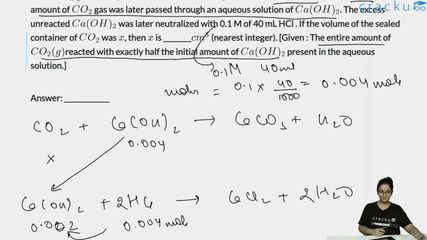 cracku
amount of CO₂ gas was later passed through an aqueous solution of Ca(OH)₂. The excess
unreacted Ca(OH)₂ was later neutralized with 0.1 M of 40 mL HCl. If the volume of the sealed
container of CO₂ was x, then x is ______ cm³ (nearest integer). [Given : The entire amount of
CO₂(g) reacted with exactly half the initial amount of Ca(OH)₂ present in the aqueous
solution.]
0.1M 40ml
moles = 0.1 x 40/1000 = 0.004 mole
Answer: ______
CO₂ + Ca(OH)₂ → CaCO₃ + H₂O
x 0.004
Ca(OH)₂ + 2HCl → CaCl₂ + 2H₂O
0.002 0.004 mol
cracku